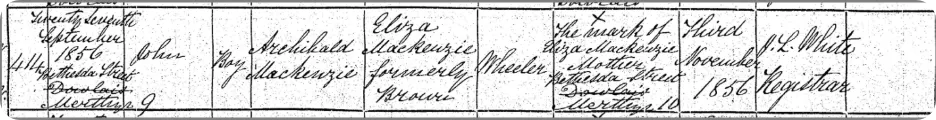 Twenty Seventh
September
1856
Bethesda Street
Dowlais
Merthyr 9
John
Boy
Archibald
Mackenzie
Eliza
Mackenzie
formerly
Brown
Wheeler
X
The mark of
Eliza Mackenzie
Mother
Bethesda Street
Dowlais
Merthyr 10
Third
November
1856
J. L. White
Registrar